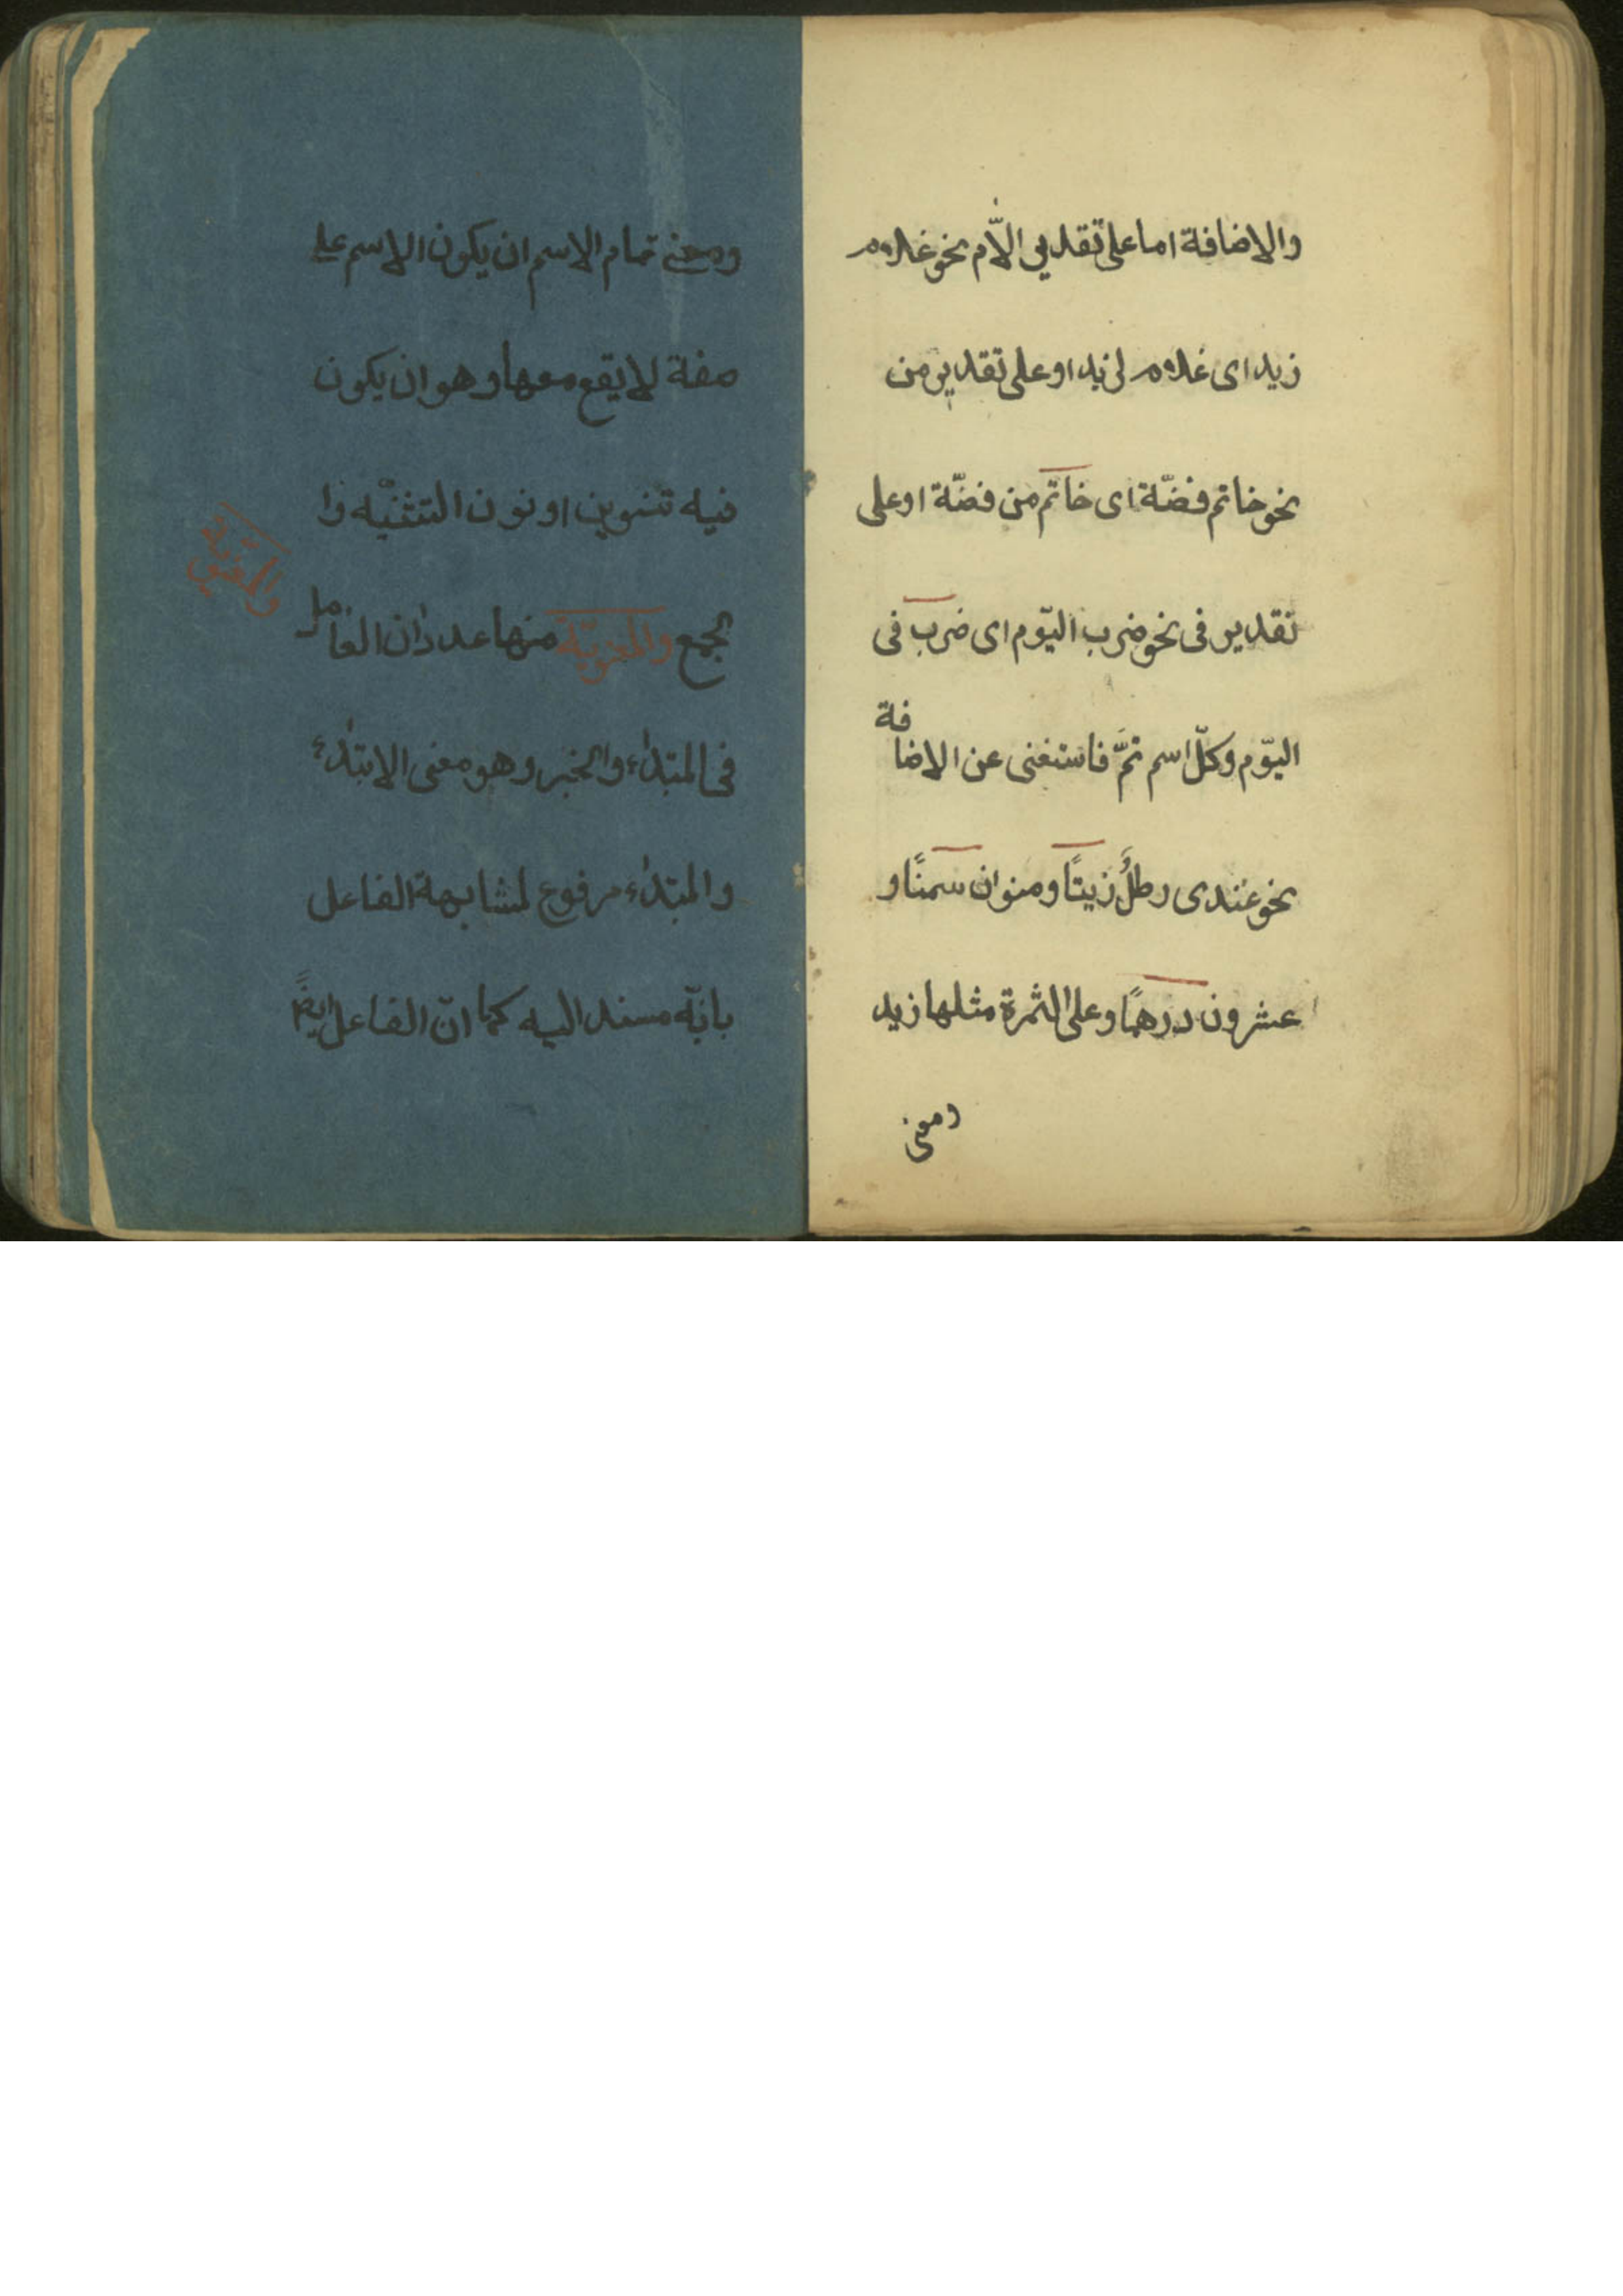 والاضافة اما على تقدير اللّام نحو غلام
زيد اى غلام لزيد او على تقدير من
نحو خاتم فضّة اى خاتم من فضّة او على
تقدير فى نحو ضرب اليّوم اى ضرب فى
اليّوم وكلّ اسم تمَّ فاستغنى عن الاضافة
نحو عندى رطلٌ زيتًا ومنوان سمنًا و
عشرون درهمًا وعلى الثمرة مثلها زيد
ومعنى
ومعنى تمام الاسم ان يكون الاسم على
صفة لا يقع معها وهو ان يكون
فيه تنوين او نون التثنيه وا
لجمع والمعنويّة منها عددان العامل
والمعنويّة
فى المبتداء والخبر وهو معنى الابتداء
والمبتداء مرفوع لمشابهة الفاعل
بانّه مسند اليه كما انّ الفاعل ايضًا